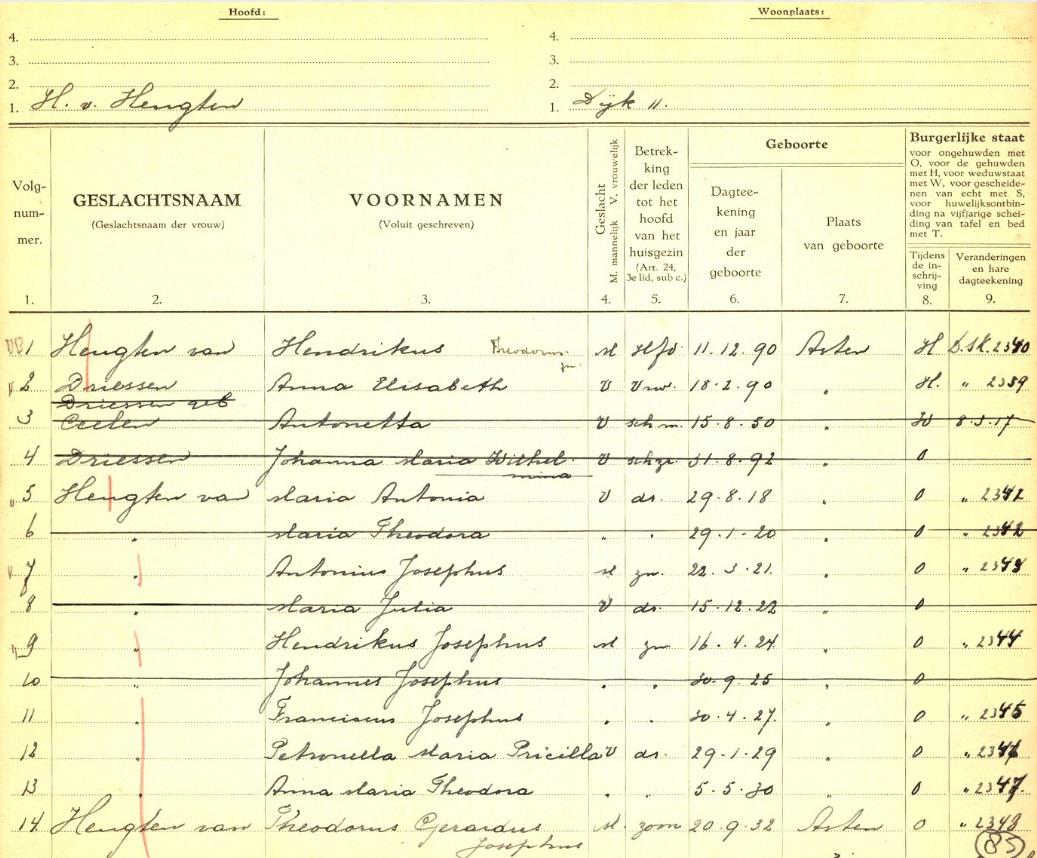 Hoofd: Woonplaats:
4. 4.
3. 3.
2. 2.
1. H. v. Hengten 1. Dijk 11.
Volg-nummer. GESLACHTSNAAM (Geslachtsnaam der vrouw) VOORNAMEN (Voluit geschreven) Geslacht M. mannelijk V. vrouwelijk Betrekking der leden tot het hoofd van het huisgezin (Art. 24, 3e lid, sub c.) Geboorte Dagteekening en jaar der geboorte Plaats van geboorte Burgerlijke staat voor ongehuwden met O, voor de gehuwden met H, voor weduwstaat met W, voor gescheidenen van echt met S, voor huwelijksontbinding na vijfjarige scheiding van tafel en bed met T. Tijdens de inschrijving Veranderingen en hare dagteekening
1. 2. 3. 4. 5. 6. 7. 8. 9.
1 Hengten van Hendrikus Theodorus zn. M Hfd 11.12.90 Asten H D.SK. 2340
2 Driessen Anna Elisabeth V Vrw. 18.2.90 " H. " 2339
Driessen geb
3 Ceelen Antonetta V sch m. 15.8.50 " W 8.3.17
4 Driessen Johanna Maria Wilhelmina V schzr 31.8.92 " O
5 Hengten van Maria Antonia V dr. 29.8.18 " O " 2341
6 " Maria Theodora " " 29.1.20 " O " 2342
7 " Antonius Josephus M zn. 22.3.21. " O " 2343
8 " Maria Julia V dr. 15.12.22 " O
9 " Hendrikus Josephus M zn 16.4.24 " O " 2344
10 " Johannes Josephus " " 30.9.25 " O
11 " Franciscus Josephus " " 30.4.27. " O " 2345
12 " Petronella Maria Pricilla V dr. 29.1.29 " O " 2346
13 " Anna Maria Theodora " " 5.5.30 " O " 2347.
14 Hengten van Theodorus Gerardus Josephus M. zoon 20.9.32 Asten O " 2348
85